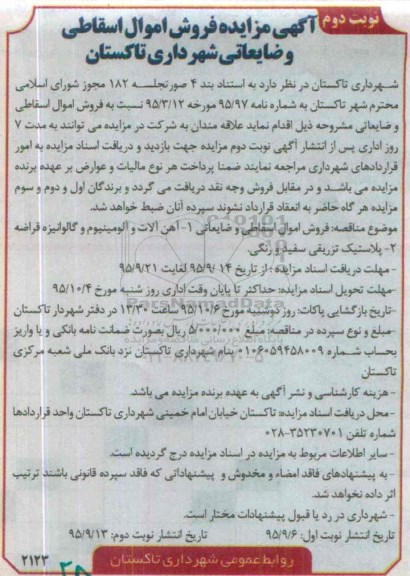 نوبت دوم
آگهی مزایده فروش اموال اسقاطی
و ضایعاتی شهرداری تاکستان
شهرداری تاکستان در نظر دارد به استناد بند ۴ صورتجلسه ۱۸۲ مجوز شورای اسلامی
محترم شهر تاکستان به شماره نامه ۹۵/۹۷ مورخه ۹۵/۳/۱۲ نسبت به فروش اموال اسقاطی
و ضایعاتی مشروحه ذیل اقدام نماید علاقه مندان به شرکت در مزایده می توانند به مدت ۷
روز اداری پس از انتشار آگهی نوبت دوم مزایده جهت بازدید و دریافت اسناد مزایده به امور
قراردادهای شهرداری مراجعه نمایند ضمنا پرداخت هر نوع مالیات و عوارض بر عهده برنده
مزایده می باشد و در مقابل فروش وجه نقد دریافت می گردد و برندگان اول و دوم و سوم
مزایده هر گاه حاضر به انعقاد قرارداد نشوند سپرده آنان ضبط خواهد شد.
موضوع مناقصه: فروش اموال اسقاطی و ضایعاتی ۱- آهن آلات و آلومینیوم و گالوانیزه قراضه
۲- پلاستیک تزریقی سفید و رنگی.
- مهلت دریافت اسناد مزایده: از تاریخ ۹۵/۹/۱۴ لغایت ۹۵/۹/۲۱
- مهلت تحویل اسناد مزایده: حداکثر تا پایان وقت اداری روز شنبه مورخ ۹۵/۱۰/۴
- تاریخ بازگشایی پاکات: روز دوشنبه مورخ ۹۵/۱۰/۶ ساعت ۱۳/۳۰ در دفتر شهردار تاکستان
- مبلغ و نوع سپرده در مناقصه: مبلغ ۵/۰۰۰/۰۰۰ ریال بصورت ضمانت نامه بانکی و یا واریز
بحساب شماره ۰۱۰۶۰۵۹۴۵۸۰۰۹ بنام شهرداری تاکستان نزد بانک ملی شعبه مرکزی
تاکستان
- هزینه کارشناسی و نشر آگهی به عهده برنده مزایده می باشد.
- محل دریافت اسناد مزایده: تاکستان خیابان امام خمینی شهرداری تاکستان واحد قراردادها
شماره تلفن ۳۵۲۳۰۷۰۱-۰۲۸
- سایر اطلاعات مربوط به مزایده در اسناد مزایده درج گردیده است.
- به پیشنهادهای فاقد امضاء و مخدوش و پیشنهاداتی که فاقد سپرده قانونی باشند ترتیب
اثر داده نخواهد شد.
- شهرداری در رد یا قبول پیشنهادات مختار است.
تاریخ انتشار نوبت اول: ۹۵/۹/۶ تاریخ انتشار نوبت دوم: ۹۵/۹/۱۳
روابط عمومی شهرداری تاکستان
۲۱۲۳